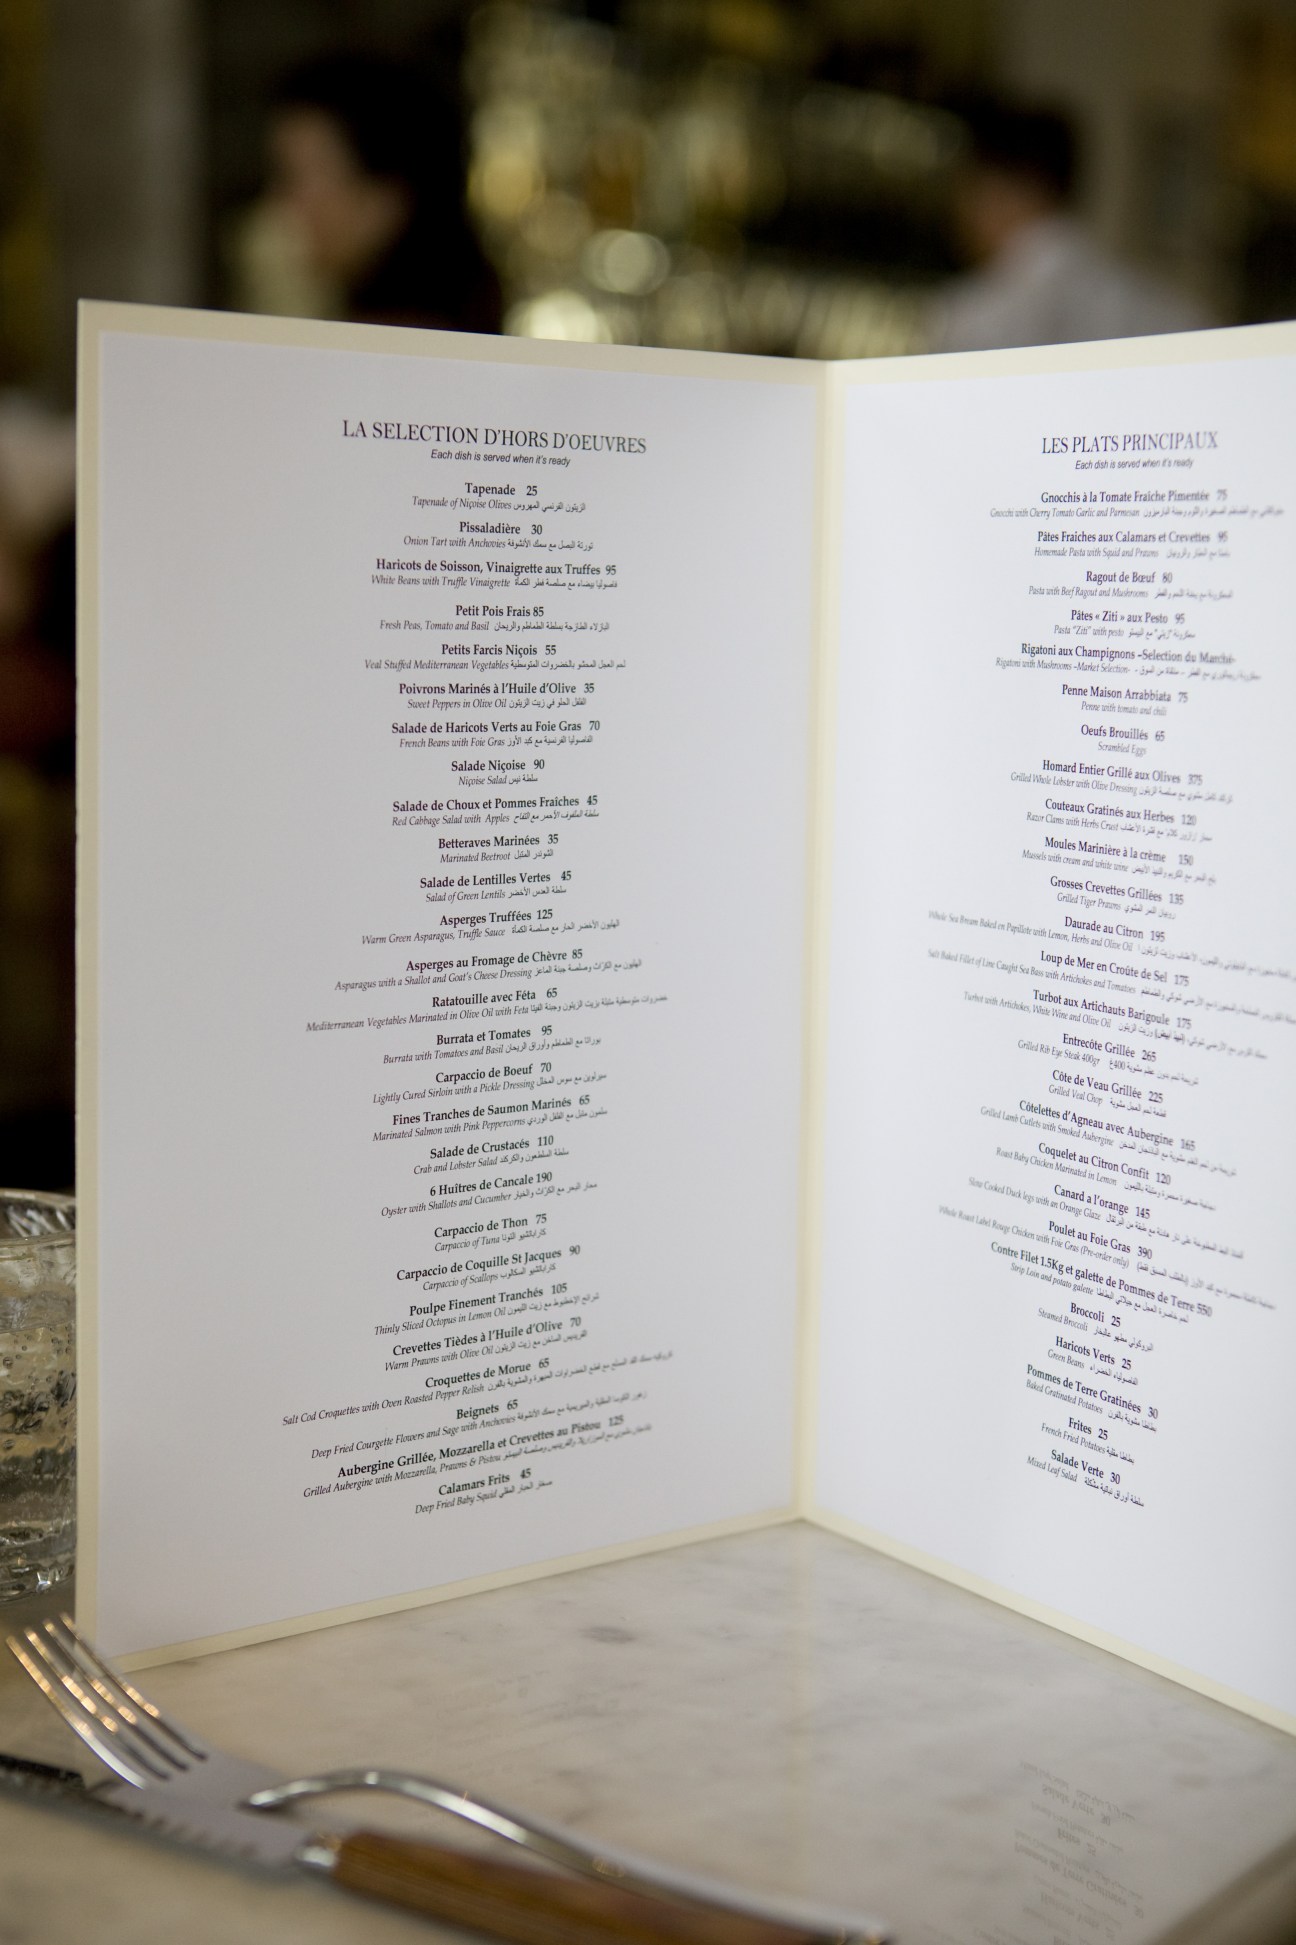 LA SELECTION D'HORS D'OEUVRES
Each dish is served when it's ready
Tapenade 25
Tapenade of Niçoise Olives الزيتون الفرنسي المهروس
Pissaladière 30
Onion Tart with Anchovies تورتة البصل مع سمك الأنشوفة
Haricots de Soisson, Vinaigrette aux Truffes 95
White Beans with Truffle Vinaigrette فاصوليا بيضاء مع صلصة فطر الكمأة
Petit Pois Frais 85
Fresh Peas, Tomato and Basil البازلاء الطازجة بسلطة الطماطم والريحان
Petits Farcis Niçois 55
Veal Stuffed Mediterranean Vegetables لحم العجل المحشو بالخضروات المتوسطية
Poivrons Marinés à l'Huile d'Olive 35
Sweet Peppers in Olive Oil الفلفل الحلو في زيت الزيتون
Salade de Haricots Verts au Foie Gras 70
French Beans with Foie Gras الفاصوليا الفرنسية مع كبد الأوز
Salade Niçoise 90
Niçoise Salad سلطة نيس
Salade de Choux et Pommes Fraîches 45
Red Cabbage Salad with Apples سلطة الملفوف الأحمر مع التفاح
Betteraves Marinées 35
Marinated Beetroot الشوندر المتبل
Salade de Lentilles Vertes 45
Salad of Green Lentils سلطة العدس الأخضر
Asperges Truffées 125
Warm Green Asparagus, Truffle Sauce الهليون الأخضر الحار مع صلصة الكمأة
Asperges au Fromage de Chèvre 85
Asparagus with a Shallot and Goat's Cheese Dressing الهليون مع الكرّاث وصلصة جبنة الماعز
Ratatouille avec Féta 65
Mediterranean Vegetables Marinated in Olive Oil with Feta خضروات متوسطية متبلة بزيت الزيتون وجبنة الفيتا
Burrata et Tomates 95
Burrata with Tomatoes and Basil بوراتا مع الطماطم وأوراق الريحان
Carpaccio de Boeuf 70
Lightly Cured Sirloin with a Pickle Dressing سيرلوين مع سوس المخلل
Fines Tranches de Saumon Marinés 65
Marinated Salmon with Pink Peppercorns سلمون متبل مع الفلفل الوردي
Salade de Crustacés 110
Crab and Lobster Salad سلطة السلطعون والكركند
6 Huîtres de Cancale 190
Oyster with Shallots and Cucumber محار البحر مع الكرّاث والخيار
Carpaccio de Thon 75
Carpaccio of Tuna كارباتشيو التونا
Carpaccio de Coquille St Jacques 90
Carpaccio of Scallops كارباتشيو السكالوب
Poulpe Finement Tranchés 105
Thinly Sliced Octopus in Lemon Oil شرائح الإخطبوط مع زيت الليمون
Crevettes Tièdes à l'Huile d'Olive 70
Warm Prawns with Olive Oil القريدس الساخن مع زيت الزيتون
Croquettes de Morue 65
Salt Cod Croquettes with Oven Roasted Pepper Relish
Beignets 65
Deep Fried Courgette Flowers and Sage with Anchovies
Aubergine Grillée, Mozzarella et Crevettes au Pistou 125
Grilled Aubergine with Mozzarella, Prawns & Pistou
Calamars Frits 45
Deep Fried Baby Squid صغار الحبار المقلي
LES PLATS PRINCIPAUX
Each dish is served when it's ready
Gnocchis à la Tomate Fraiche Pimentée 75
Gnocchi with Cherry Tomato Garlic and Parmesan
Pâtes Fraiches aux Calamars et Crevettes 95
Homemade Pasta with Squid and Prawns
Ragout de Bœuf 80
Pasta with Beef Ragout and Mushrooms
Pâtes « Ziti » aux Pesto 95
Pasta "Ziti" with pesto معكرونة "زيتي" مع البيستو
Rigatoni aux Champignons –Selection du Marché-
Rigatoni with Mushrooms –Market Selection-
Penne Maison Arrabbiata 75
Penne with tomato and chili
Oeufs Brouillés 65
Scrambled Eggs
Homard Entier Grillé aux Olives 375
Grilled Whole Lobster with Olive Dressing
Couteaux Gratinés aux Herbes 120
Razor Clams with Herbs Crust
Moules Marinière à la crème 150
Mussels with cream and white wine
Grosses Crevettes Grillées 135
Grilled Tiger Prawns روبيان النمر المشوي
Daurade au Citron 195
Whole Sea Bream Baked en Papillote with Lemon, Herbs and Olive Oil
Loup de Mer en Croûte de Sel 175
Salt Baked Fillet of Line Caught Sea Bass with Artichokes and Tomatoes
Turbot aux Artichauts Barigoule 175
Turbot with Artichokes, White Wine and Olive Oil
Entrecôte Grillée 265
Grilled Rib Eye Steak 400gr
Côte de Veau Grillée 225
Grilled Veal Chop قطعة لحم العجل مشوية
Côtelettes d'Agneau avec Aubergine 165
Grilled Lamb Cutlets with Smoked Aubergine
Coquelet au Citron Confit 120
Roast Baby Chicken Marinated in Lemon
Canard a l'orange 145
Slow Cooked Duck legs with an Orange Glaze
Poulet au Foie Gras 390
Whole Roast Label Rouge Chicken with Foie Gras (Pre-order only)
Contre Filet 1.5Kg et galette de Pommes de Terre 550
Strip Loin and potato galette
Broccoli 25
Steamed Broccoli
Haricots Verts 25
Green Beans الفاصولياء الخضراء
Pommes de Terre Gratinées 30
Baked Gratinated Potatoes بطاطا مشوية بالفرن
Frites 25
French Fried Potatoes بطاطا مقلية
Salade Verte 30
Mixed Leaf Salad سلطة أوراق نباتية مشكلة